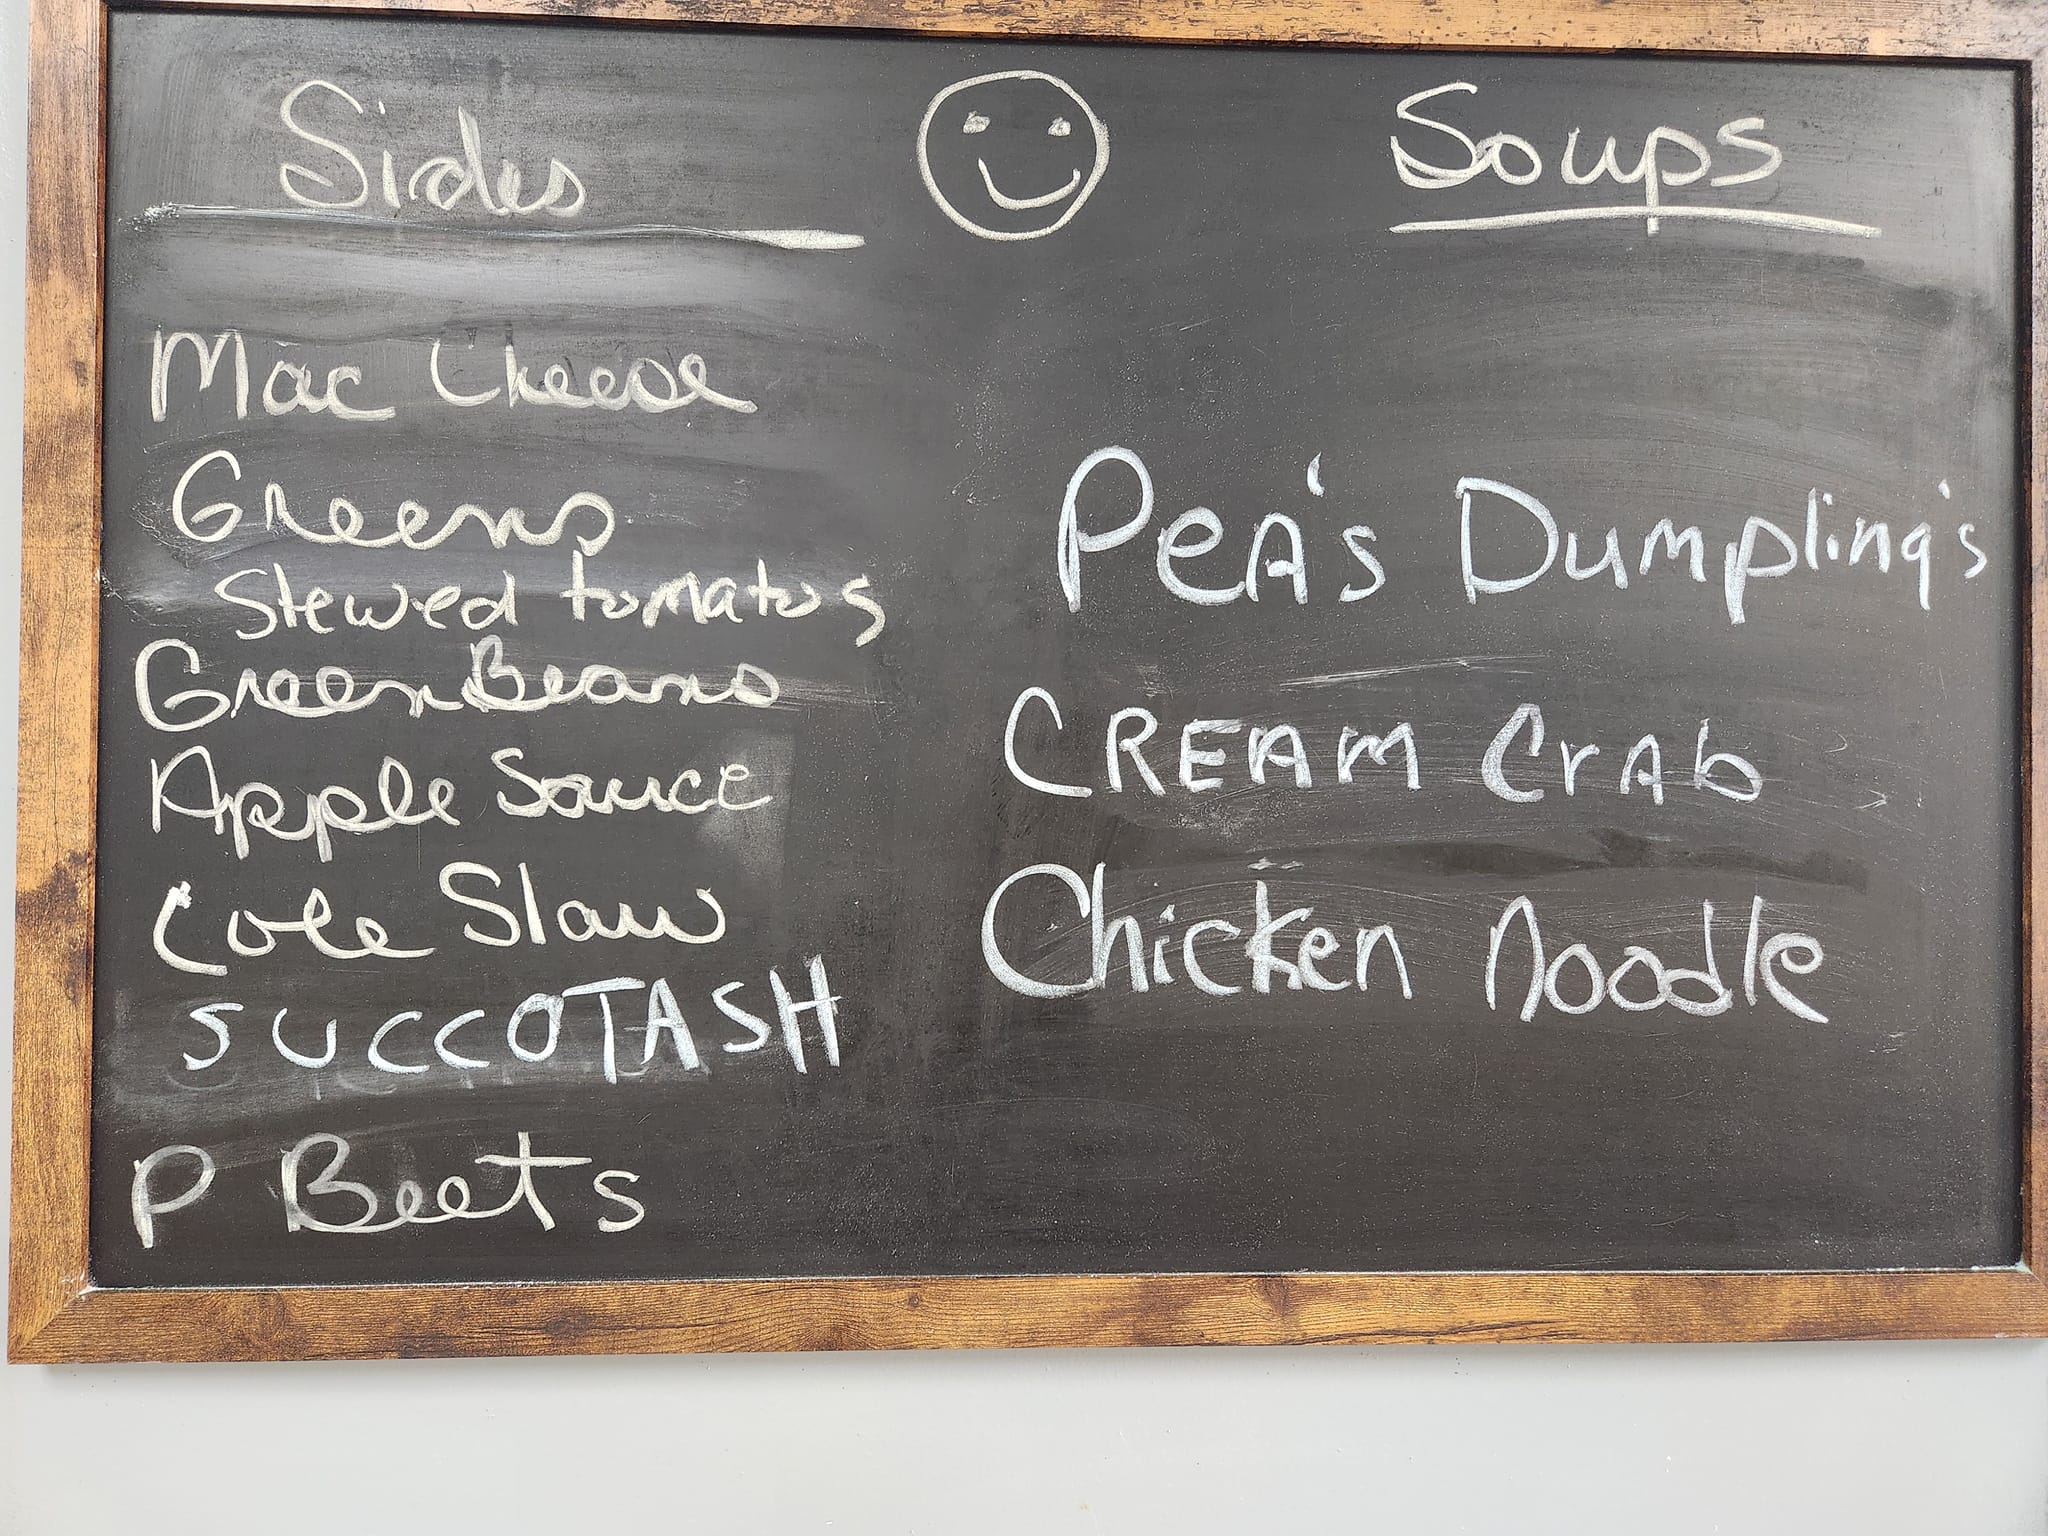 Sides
Mac Cheese
Greens
Stewed tomatos
Green Beans
Apple Sauce
Cole Slaw
SUCCOTASH
P Beets
Soups
PeA's Dumpling's
CREAM CrAb
Chicken Noodle